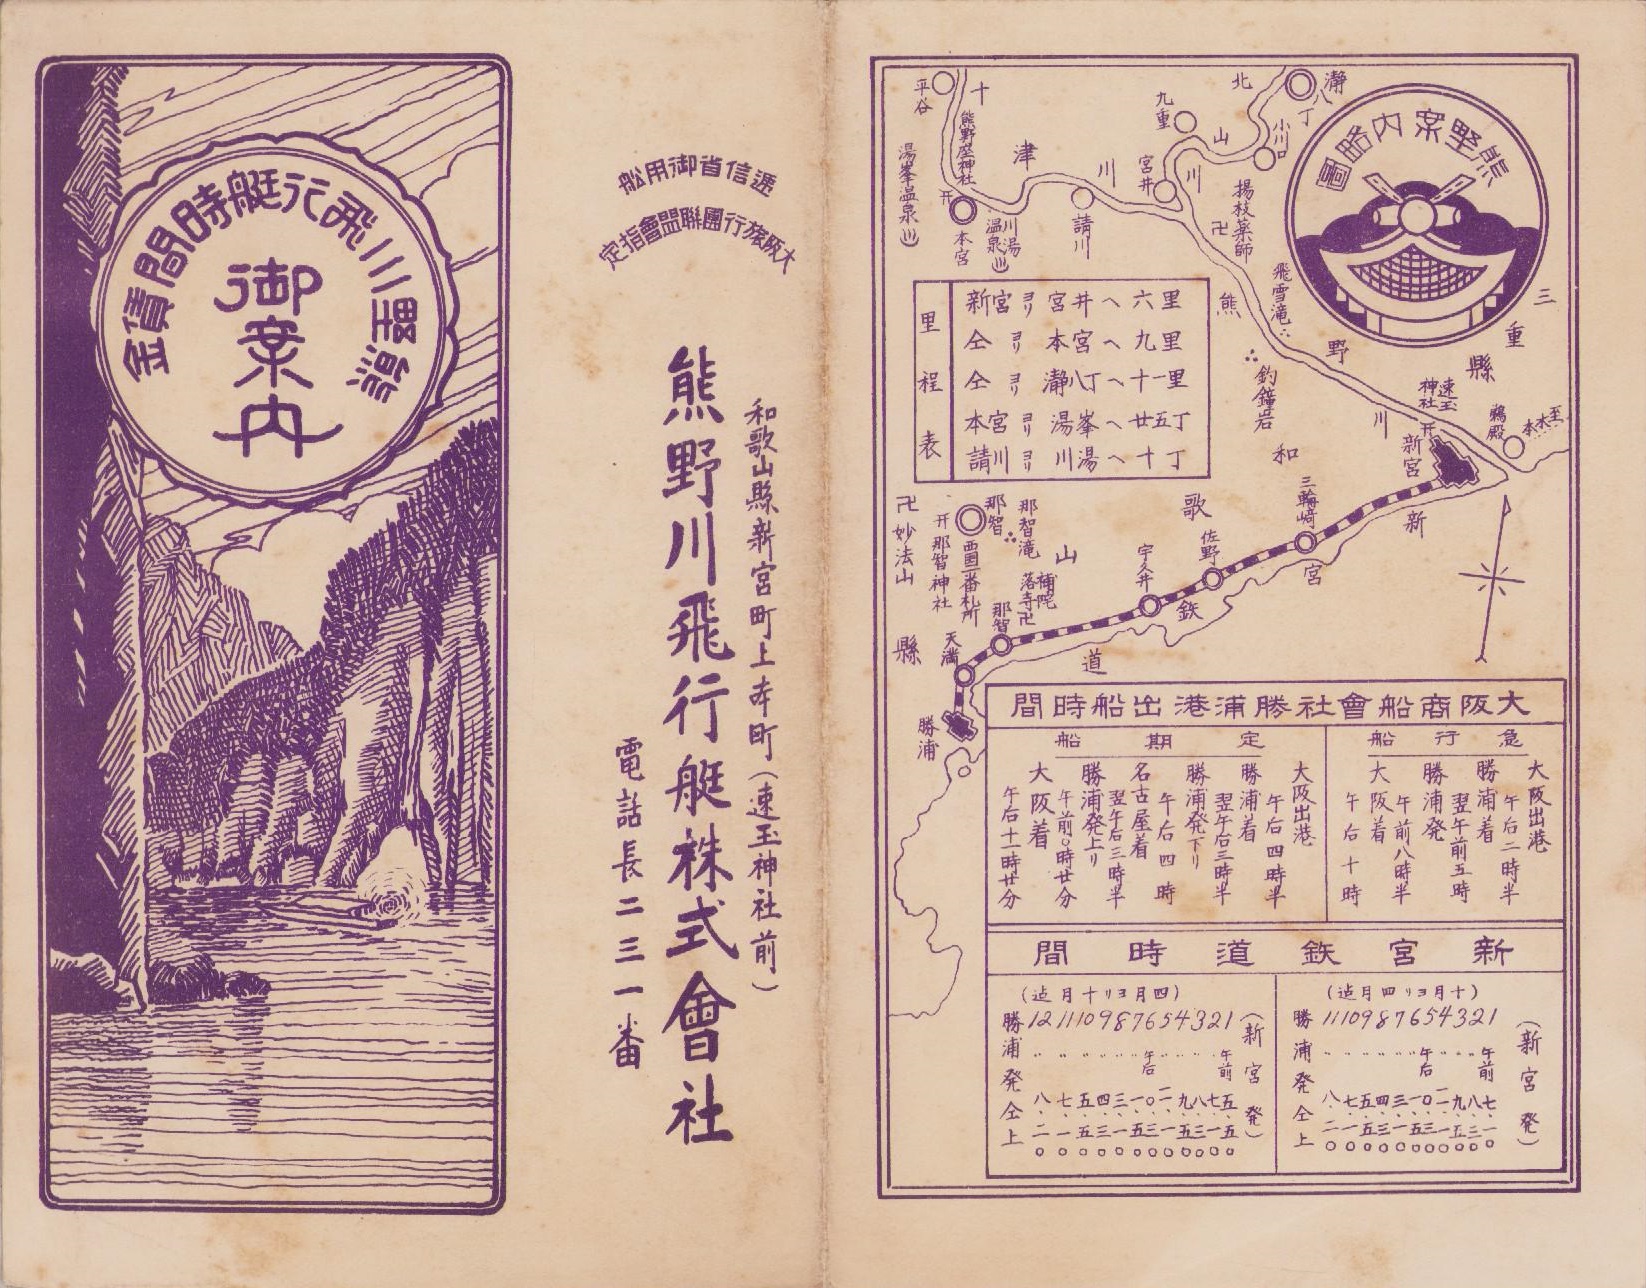 熊野川飛行艇時間賃金
御案内
逓信省御用船
大阪旅行團聯盟會指定
和歌山縣新宮町上本町（速玉神社前）
熊野川飛行艇株式會社
電話長二三一番
熊野案内略圖
瀞八丁
北山川
小川口
九重
宮井
十津川
平谷
熊野座神社
本宮
湯峯温泉
川湯温泉
請川
揚枝薬師
飛雪滝
釣鐘岩
熊野川
三重縣
和歌山縣
速玉神社
新宮
鵜殿
至木本
里程表
新宮ヨリ宮井へ六里
仝ヨリ本宮へ九里
仝ヨリ瀞八丁へ十一里
本宮ヨリ湯峯へ廿五丁
請川ヨリ川湯へ十丁
新宮鉄道
三輪崎
佐野
宇久井
那智
天満
勝浦
那智
那智滝
補陀落寺
西国一番札所
那智神社
妙法山
大阪商船會社勝浦港出船時間
急行船
大阪出港
午后二時半
勝浦着
翌午前五時
勝浦発
午前八時半
大阪着
午后十時
定期船
大阪出港
午后四時半
勝浦着
翌午后三時半
勝浦発下リ
午后四時
名古屋着
翌午后三時半
勝浦発上リ
午前〇時廿分
大阪着
午后十一時廿分
新宮鉄道時間
（十月ヨリ四月迠）
（新宮発）
勝浦発仝上
1 2 3 4 5 6 7 8 9 10 11
午前
午后
（四月ヨリ十月迠）
（新宮発）
勝浦発仝上
1 2 3 4 5 6 7 8 9 10 11 12
午前
午后